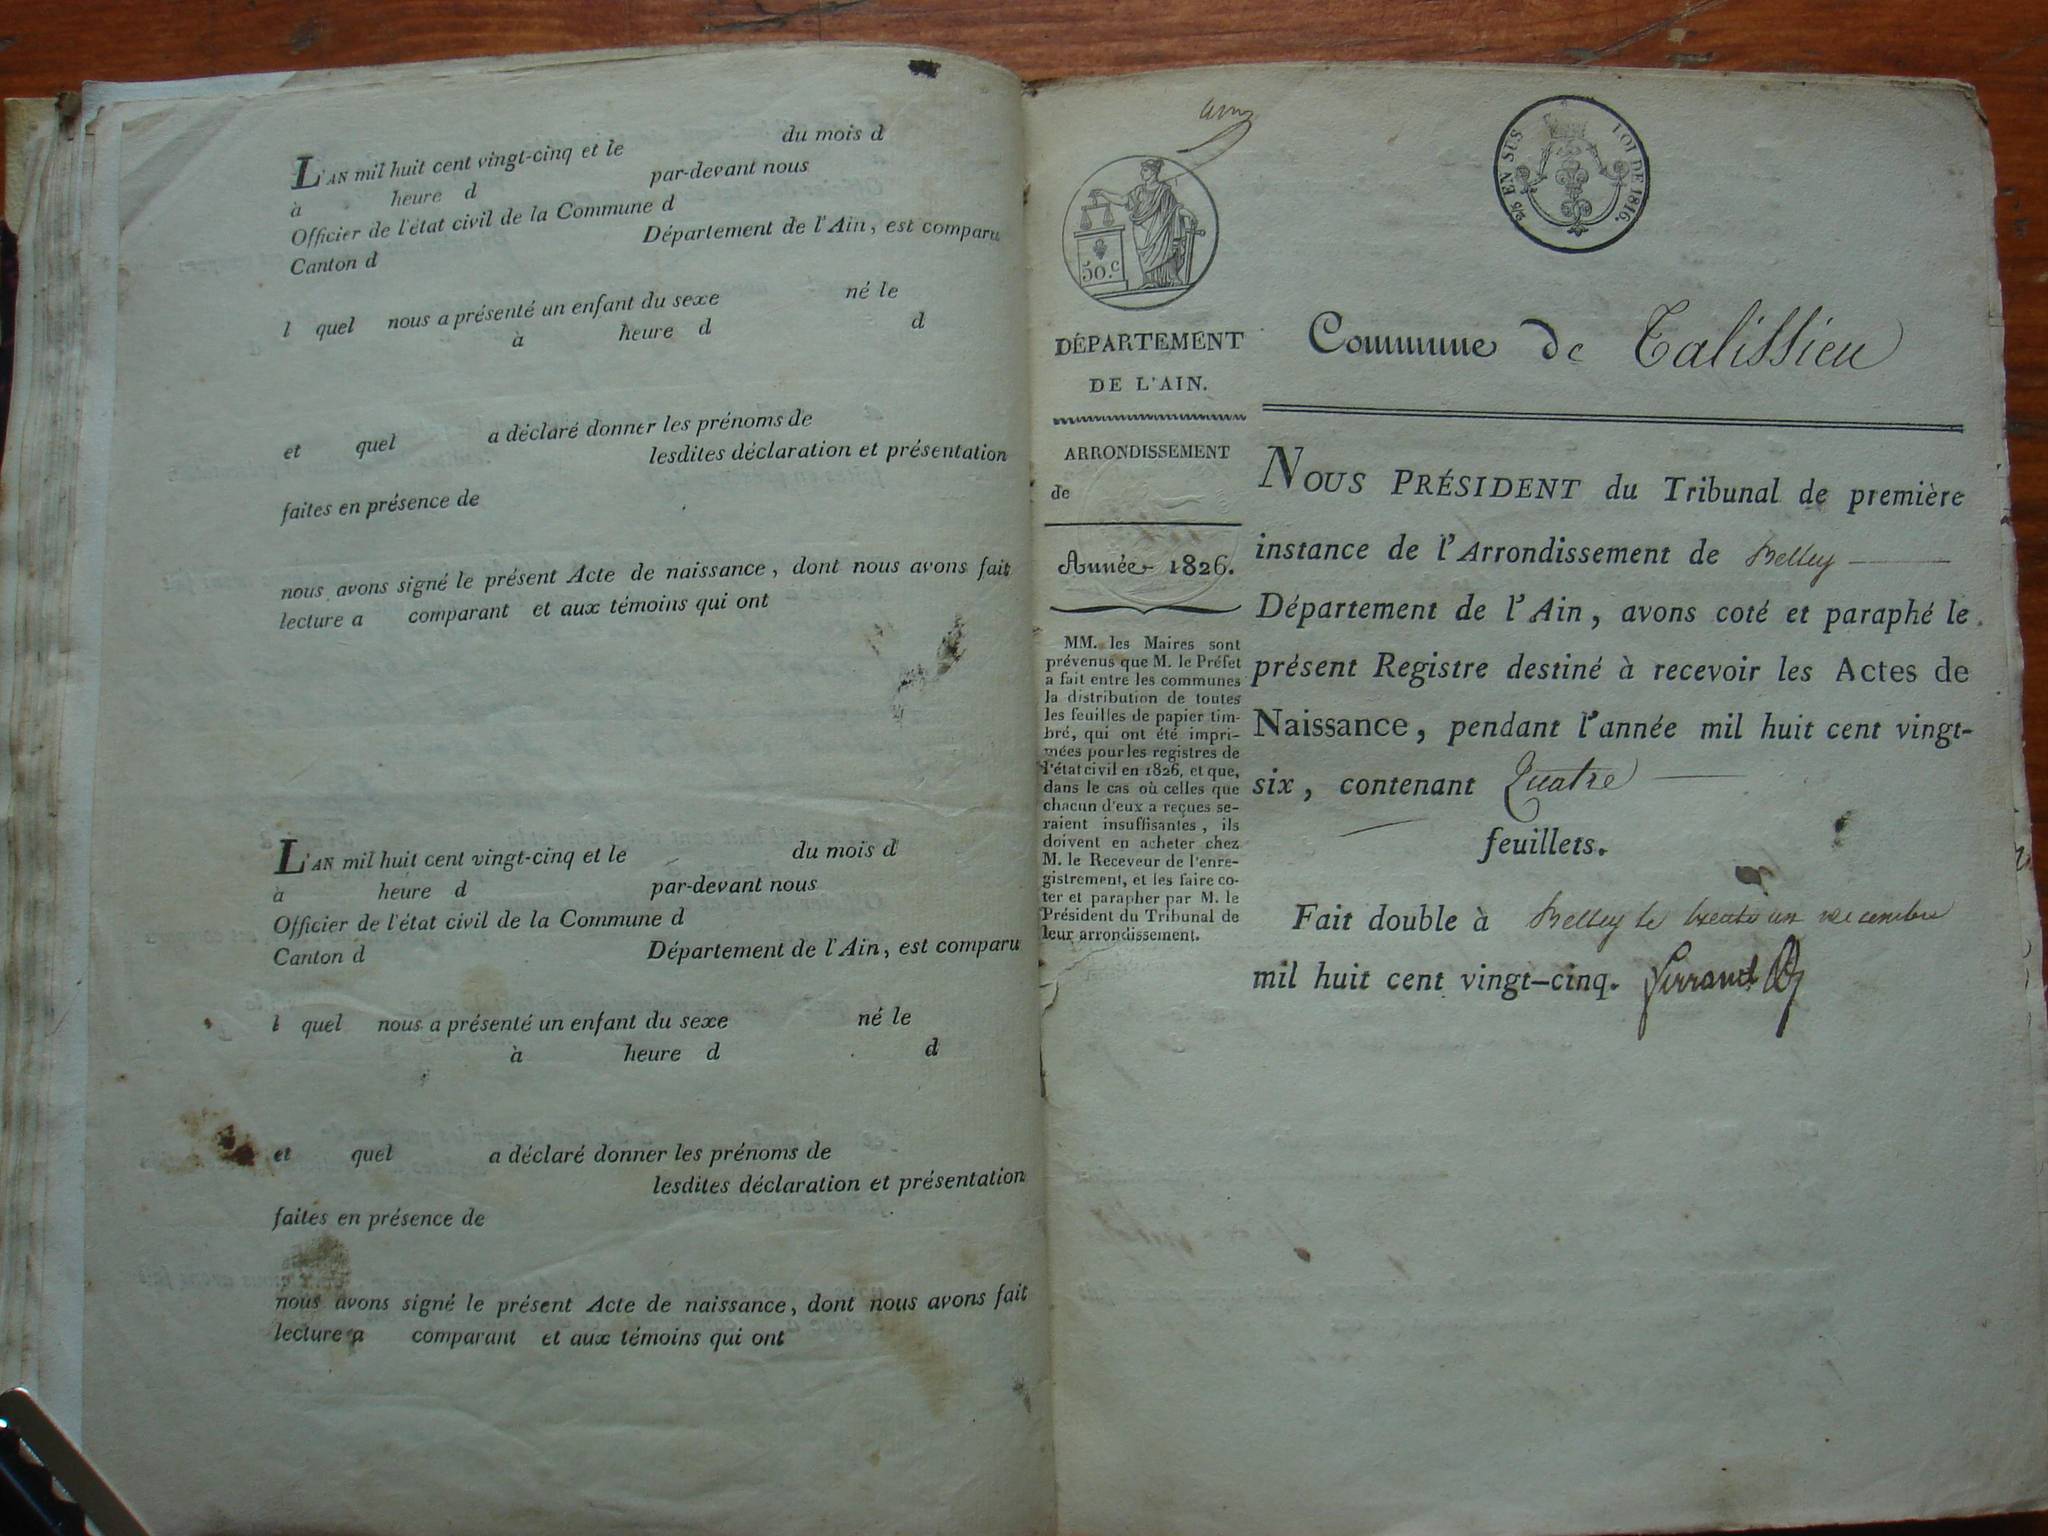 L'AN mil huit cent vingt-cinq et le du mois d
à heure d par-devant nous
Officier de l'état civil de la Commune d
Canton d Département de l'Ain, est comparu
l quel nous a présenté un enfant du sexe né le
à heure d d
et quel a déclaré donner les prénoms de
lesdites déclaration et présentation
faites en présence de
nous avons signé le présent Acte de naissance, dont nous avons fait
lecture a comparant et aux témoins qui ont
L'AN mil huit cent vingt-cinq et le du mois d
à heure d par-devant nous
Officier de l'état civil de la Commune d
Canton d Département de l'Ain, est comparu
l quel nous a présenté un enfant du sexe né le
à heure d d
et quel a déclaré donner les prénoms de
lesdites déclaration et présentation
faites en présence de
nous avons signé le présent Acte de naissance, dont nous avons fait
lecture a comparant et aux témoins qui ont
50.c
EN SUS LOI DE 1816.
DÉPARTEMENT
DE L'AIN.
ARRONDISSEMENT
de
Année 1826.
MM. les Maires sont
prévenus que M. le Préfet
a fait entre les communes
la distribution de toutes
les feuilles de papier tim-
bré, qui ont été impri-
mées pour les registres de
l'état civil en 1826, et que,
dans le cas où celles que
chacun d'eux a reçues se-
raient insuffisantes, ils
doivent en acheter chez
M. le Receveur de l'enre-
gistrement, et les faire co-
ter et parapher par M. le
Président du Tribunal de
leur arrondissement.
Commune de Talissieu
NOUS PRÉSIDENT du Tribunal de première
instance de l'Arrondissement de Belley
Département de l'Ain, avons coté et paraphé le
présent Registre destiné à recevoir les Actes de
Naissance, pendant l'année mil huit cent vingt-
six, contenant Quatre
feuillets.
Fait double à Belley le trente un decembre
mil huit cent vingt-cinq.